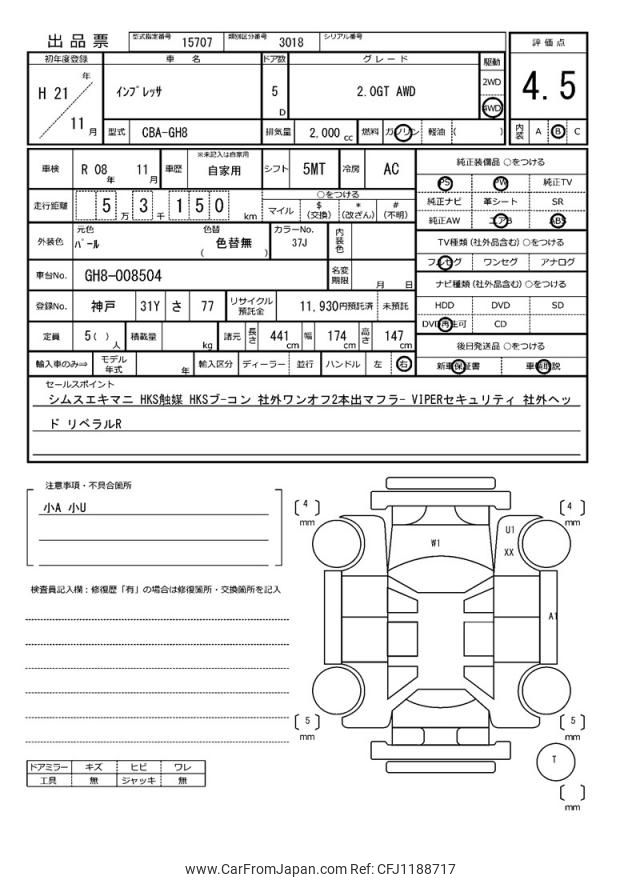 出品票
型式指定番号 15707 類別区分番号 3018 シリアル番号
評価点
4.5
初年度登録 車名 ドア数 グレード 駆動
H 21 年 11 月
インプレッサ 5 D 2.0GT AWD 2WD 4WD
型式 CBA-GH8 排気量 2,000 cc 燃料 ガソリン 軽油 ( )
内装 A B C
車検 R 08 年 11 月 車歴 ※未記入は自家用 自家用 シフト 5MT 冷房 AC
純正装備品 ○をつける
PS PW 純正TV
純正ナビ 革シート SR
純正AW エアB ABS
走行距離 5 万 3 千 1 5 0 km
○をつける
マイル $ (交換) * (改ざん) # (不明)
外装色 元色 パール 色替 ( 色替無 ) カラーNo. 37J 内装色
TV種類 (社外品含む) ○をつける
フルセグ ワンセグ アナログ
車台No. GH8-008504 名変期限 月 日
ナビ種類 (社外品含む) ○をつける
HDD DVD SD
DVD再生可 CD
登録No. 神戸 31Y さ 77 リサイクル預託金 11,930円預託済 未預託
定員 5( ) 人 積載量 kg 諸元 長さ 441 cm 幅 174 cm 高さ 147 cm
後日発送品 ○をつける
新車保証書 車輌取説
輸入車のみ⇒ モデル年式 年 輸入区分 ディーラー 並行 ハンドル 左 右
セールスポイント
シムスエキマニ HKS触媒 HKSブ-コン 社外ワンオフ2本出マフラ- VIPERセキュリティ 社外ヘッ
ド リベラルR
注意事項・不具合箇所
小A 小U
検査員記入欄：修復歴「有」の場合は修復箇所・交換箇所を記入
ドアミラー キズ ヒビ ワレ
工具 無 ジャッキ 無
4 mm
4 mm
U1
XX
W1
A1
5 mm
5 mm
T
mm
www.CarFromJapan.com Ref: CFJ1188717